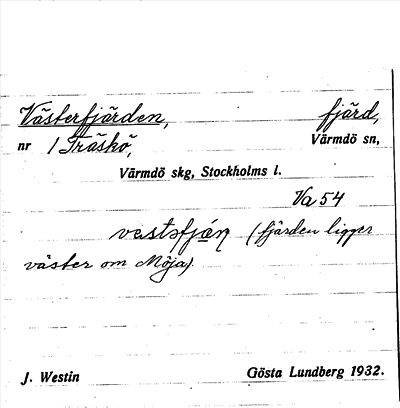 Västerfjärden, fjärd,
nr 1 Träskö, Värmdö sn,
Värmdö skg, Stockholms l.
Va 54
(fjärden ligger
väster om Möja).
J. Westin Gösta Lundberg 1932.